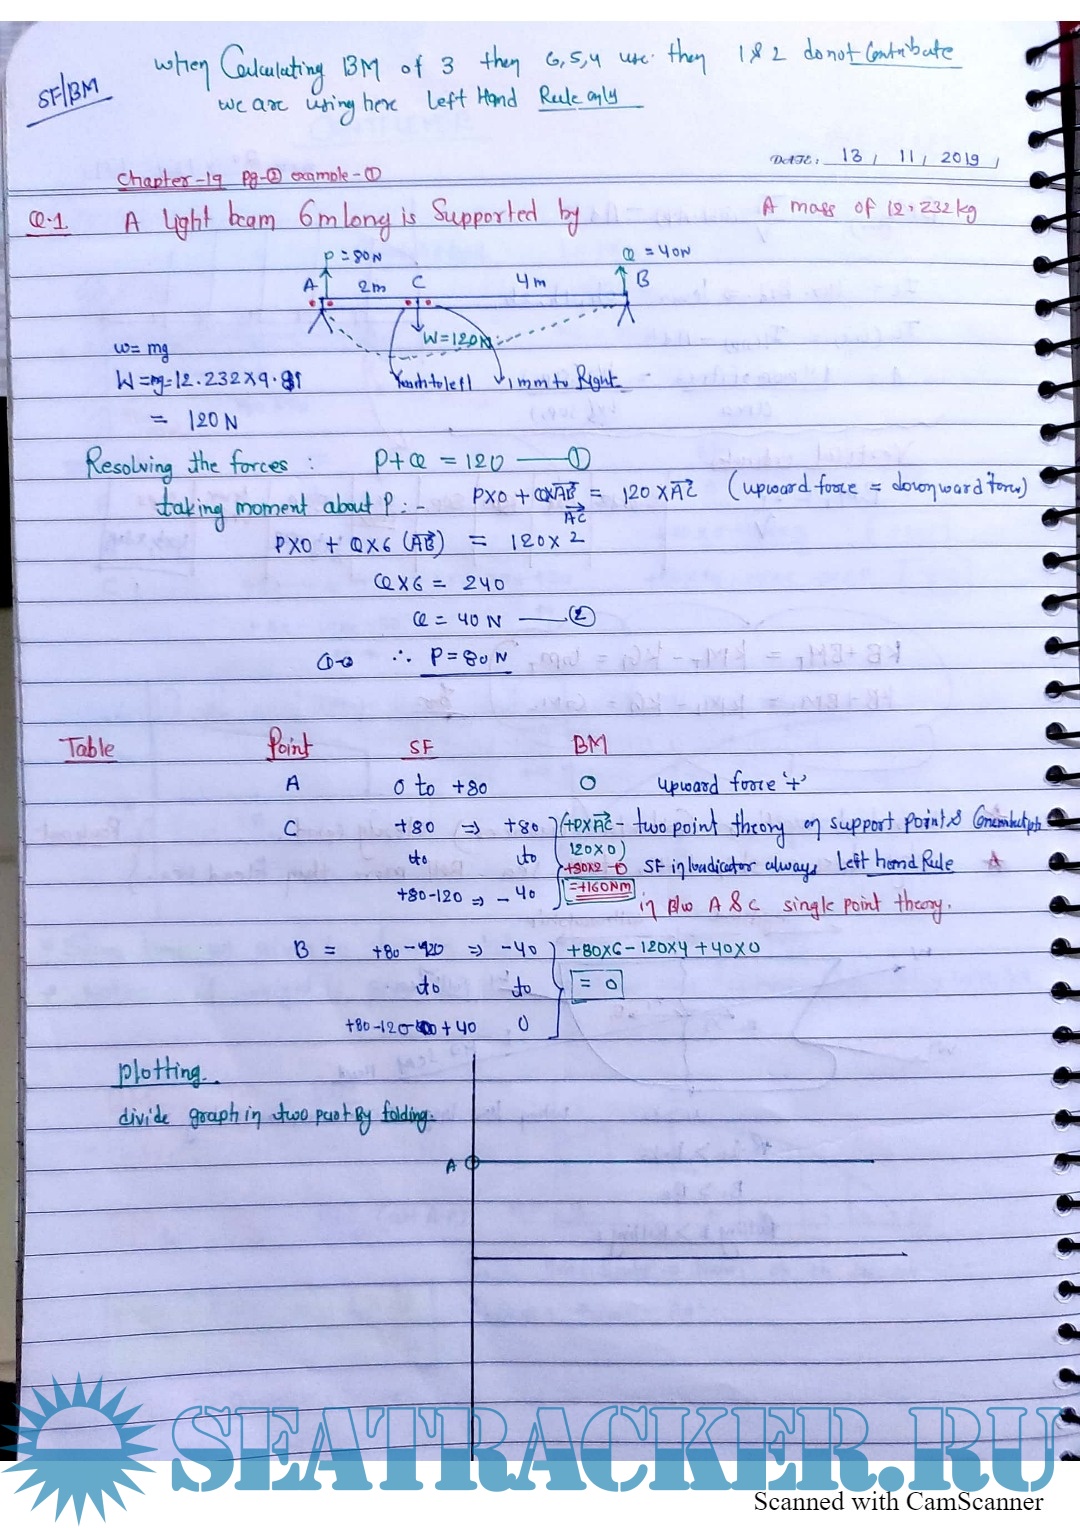 when Calculating BM of 3 then 6,5,4 use then 1 & 2 do not Contribute
SF/BM
we are using here Left Hand Rule only
DATE: 13 / 11 / 2019 /
Chapter-19 pg-② example-①
Q.1 A light beam 6m long is Supported by A mass of 12.232kg
P = 80N Q = 40N
A 2m C 4m B
W=120N
w= mg
1mm to left 1mm to Right
W=mg=12.232x9.81
= 120N
Resolving the forces : P+Q = 120 ——①
taking moment about P : - PX0 + QXAB = 120 XAC (upward force = downward force)
AC
PX0 + QX6 (AB) = 120x2
QX6 = 240
Q = 40 N ——②
∴ P=80N
Table Point SF BM
A 0 to +80 0 upward force '+'
C +80 ⇒ +80 (+PXAC - two point theory on support points &
to to 120x0) SF indicator always Left hand Rule
+80x2 - 0
+80-120 ⇒ -40 =+160Nm in B/w A & C single point theory.
B = +80-120 ⇒ -40 +80x6-120x4+40x0
to to = 0
+80-120 + 40 0
plotting.
divide graph in two part By folding.
A
SEATRACKER.RU
Scanned with CamScanner